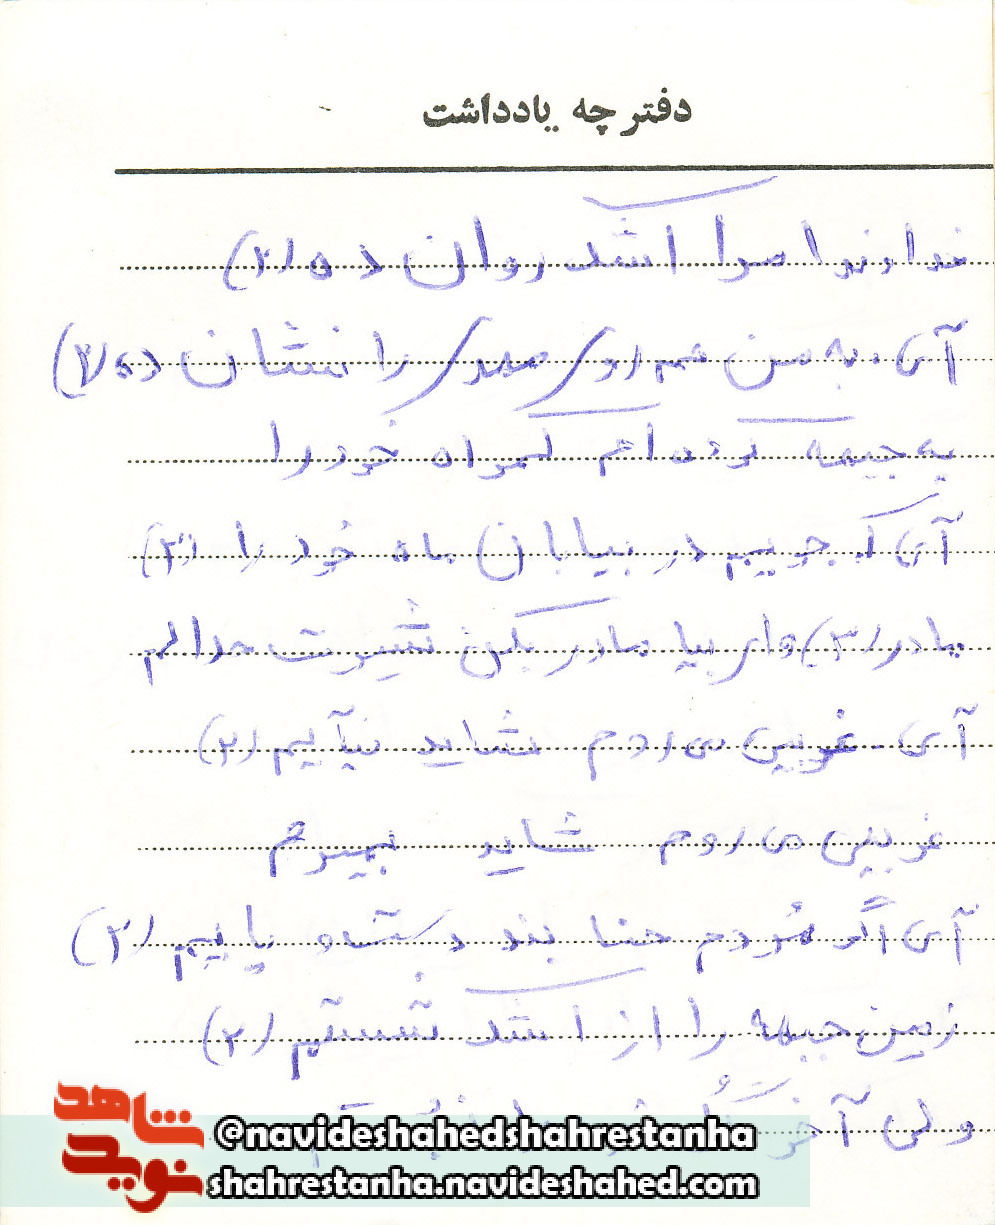 دفترچه یادداشت
خداوندا مرا اشک روان ده (۲)
آی به من هم رو را نشان ده (۲)
به جبهه کرده‌ام گمراه خود را
آی که جویم در بیابان ماه خود را (۲)
مادر (۳) وای بیا مادر بکن شیرت حلالم
آی غریبی می روم شاید نیآیم (۲)
غریبی می روم شاید بمیرم
آی اگر مُردم حنا بند دست و پایم (۲)
زمین جبهه را از اشک شستم (۲)
ولی آخر
شاهد
نوید
@navideshahedshahrestanha
shahrestanha.navideshahed.com